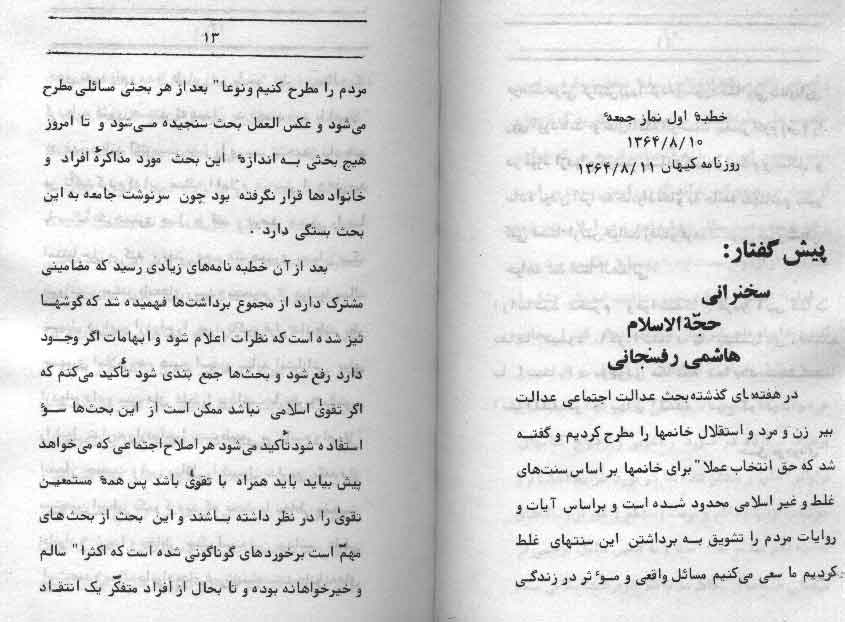 خطبهٔ اول نماز جمعهٔ
۱۳۶۴/۸/۱۰
روزنامه کیهان ۱۳۶۴/۸/۱۱
پیش گفتار:
سخنرانی
حجّة الاسلام
هاشمی رفسنجانی
در هفته‌های گذشته بحث عدالت اجتماعی عدالت
بیر زن و مرد و استقلال خانمها را مطرح کردیم و گفتـه
شد که حق انتخاب عملا" برای خانمها بر اساس سنت‌های
غلط و غیر اسلامی محدود شـده است و براساس آیات و
روایات مردم را تشویق بـه برداشتن این سنتهای غلط
کردیم ما سعی می‌کنیم مسائل واقعی و مـؤثر در زندگـی
۱۳
مردم را مطرح کنیم ونوعا" بعد از هر بحثی مسائلی مطرح
می‌شود و عکس العمل بحث سنجیده مـی‌شود و تا امروز
هیچ بحثی بـه اندازهٔ این بحث مورد مذاکرهٔ افراد و
خانواده‌ها قرار نگرفته بود چون سرنوشت جامعه به این
بحث بستگی دارد".
بعد از آن خطبه نامه‌های زیادی رسید که مضامینی
مشترک دارد از مجموع برداشت‌ها فهمیده شد که گوشها
تیز شده است که نظرات اعلام شود و ابهامات اگر وجـود
دارد رفع شود و بحث‌ها جمع بندی شود تأکید می‌کنم که
اگر تقوی اسلامی نباشد ممکن است از این بحث‌ها سـؤ
استفاده شود تأکید می‌شود هر اصلاح اجتماعی که می‌خواهد
پیش بیاید باید همراه با تقوی باشد پس همهٔ مستمعین
تقوی را در نظر داشته بـاشند و این بحث از بحث‌های
مهمّ است برخوردهای گوناگونی شده است که اکثرا" سالم
و خیرخواهانه بوده و تا بحال از افراد متفکّر یک انتقـاد